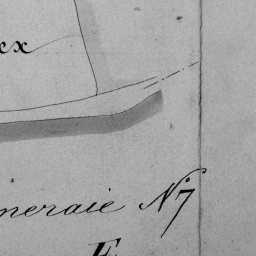 ex
meraie N. 7
E